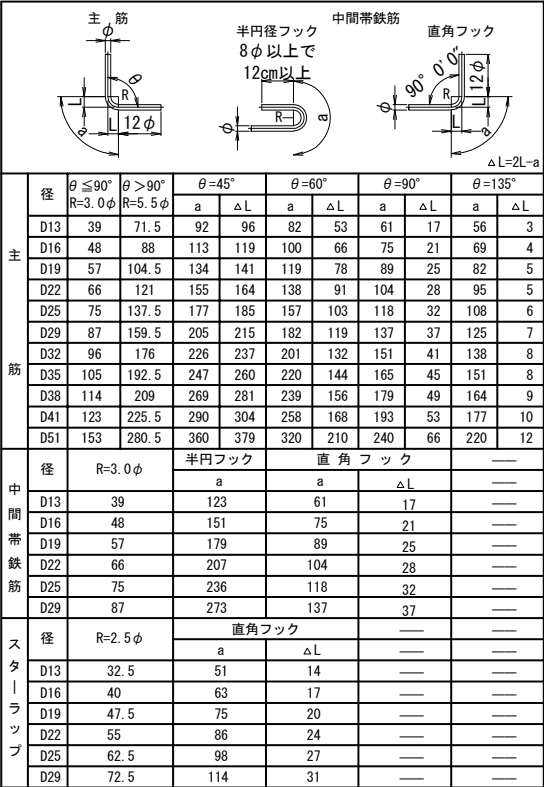 主 筋 中間帯鉄筋
半円径フック 直角フック
8φ以上で
12cm以上
φ θ R L L 12φ a
φ R a
90°0'0" 12φ φ R L L a
△L=2L-a
径 θ≦90° θ>90° θ=45° θ=60° θ=90° θ=135°
R=3.0φ R=5.5φ a △L a △L a △L a △L
主筋
D13 39 71.5 92 96 82 53 61 17 56 3
D16 48 88 113 119 100 66 75 21 69 4
D19 57 104.5 134 141 119 78 89 25 82 5
D22 66 121 155 164 138 91 104 28 95 5
D25 75 137.5 177 185 157 103 118 32 108 6
D29 87 159.5 205 215 182 119 137 37 125 7
D32 96 176 226 237 201 132 151 41 138 8
D35 105 192.5 247 260 220 144 165 45 151 8
D38 114 209 269 281 239 156 179 49 164 9
D41 123 225.5 290 304 258 168 193 53 177 10
D51 153 280.5 360 379 320 210 240 66 220 12
中間帯鉄筋
径 R=3.0φ 半円フック 直角フック ——
a a △L ——
D13 39 123 61 17 ——
D16 48 151 75 21 ——
D19 57 179 89 25 ——
D22 66 207 104 28 ——
D25 75 236 118 32 ——
D29 87 273 137 37 ——
スターラップ
径 R=2.5φ 直角フック —— ——
a △L —— ——
D13 32.5 51 14 —— ——
D16 40 63 17 —— ——
D19 47.5 75 20 —— ——
D22 55 86 24 —— ——
D25 62.5 98 27 —— ——
D29 72.5 114 31 —— ——